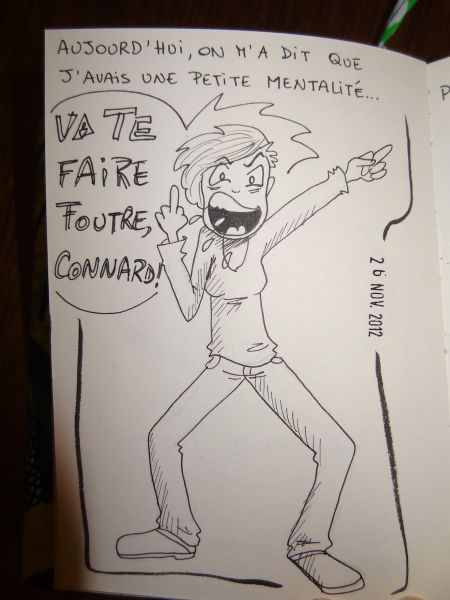 AUJOURD'HUI, ON M'A DIT QUE
J'AVAIS UNE PETITE MENTALITÉ...
VA TE
FAIRE
FOUTRE,
CONNARD!
26 NOV. 2012
P